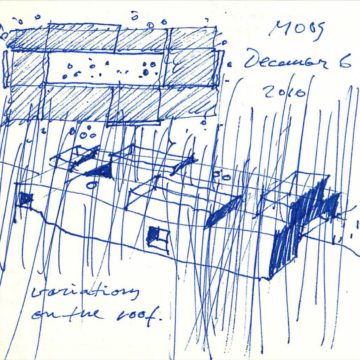 MOBS
December 6
2010
variations
on the roof.